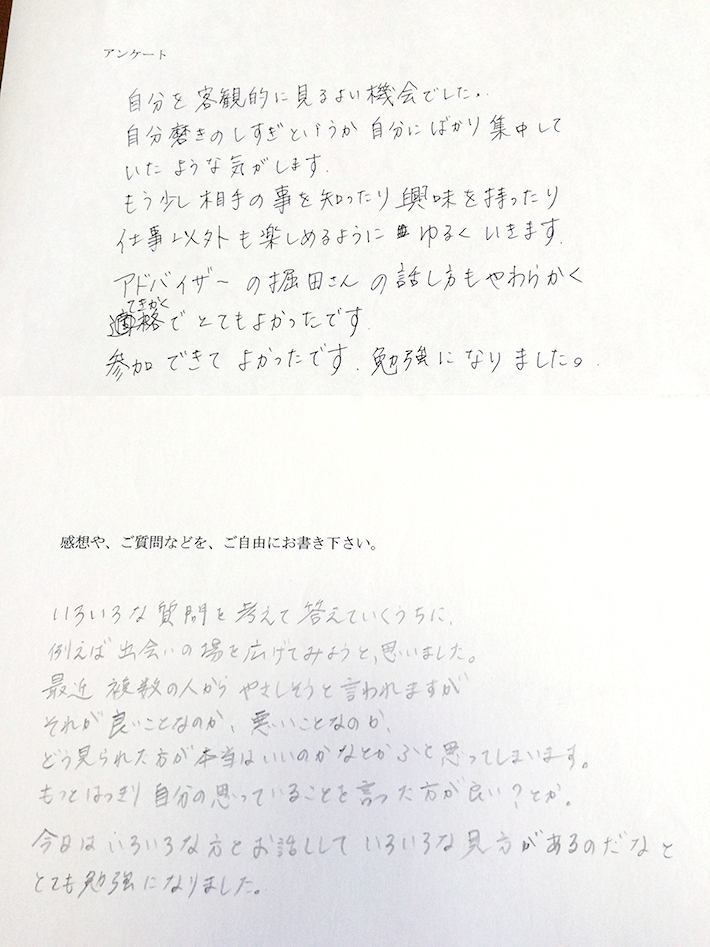 アンケート
自分を客観的に見るよい機会でした.
自分磨きのしすぎというか 自分にばかり集中して
いたような気がします.
もう少し相手の事を知ったり興味を持ったり
仕事以外も楽しめるように ゆるくいきます.
アドバイザーの掘田さんの話し方もやわらかく
てきかく
適格でとてもよかったです.
参加できてよかったです.勉強になりました。
感想や、ご質問などを、ご自由にお書き下さい。
いろいろな質問を考えて答えていくうちに、
例えば出会いの場を広げてみようと、思いました。
最近 複数の人からやさしそうと言われますが
それが良いことなのか、悪いことなのか、
どう見られた方が本当はいいのかなとかふと思ってしまいます。
もっとはっきり自分の思っていることを言った方が良い?とか。
今日はいろいろな方とお話しして いろいろな見方があるのだなと
とても勉強になりました。